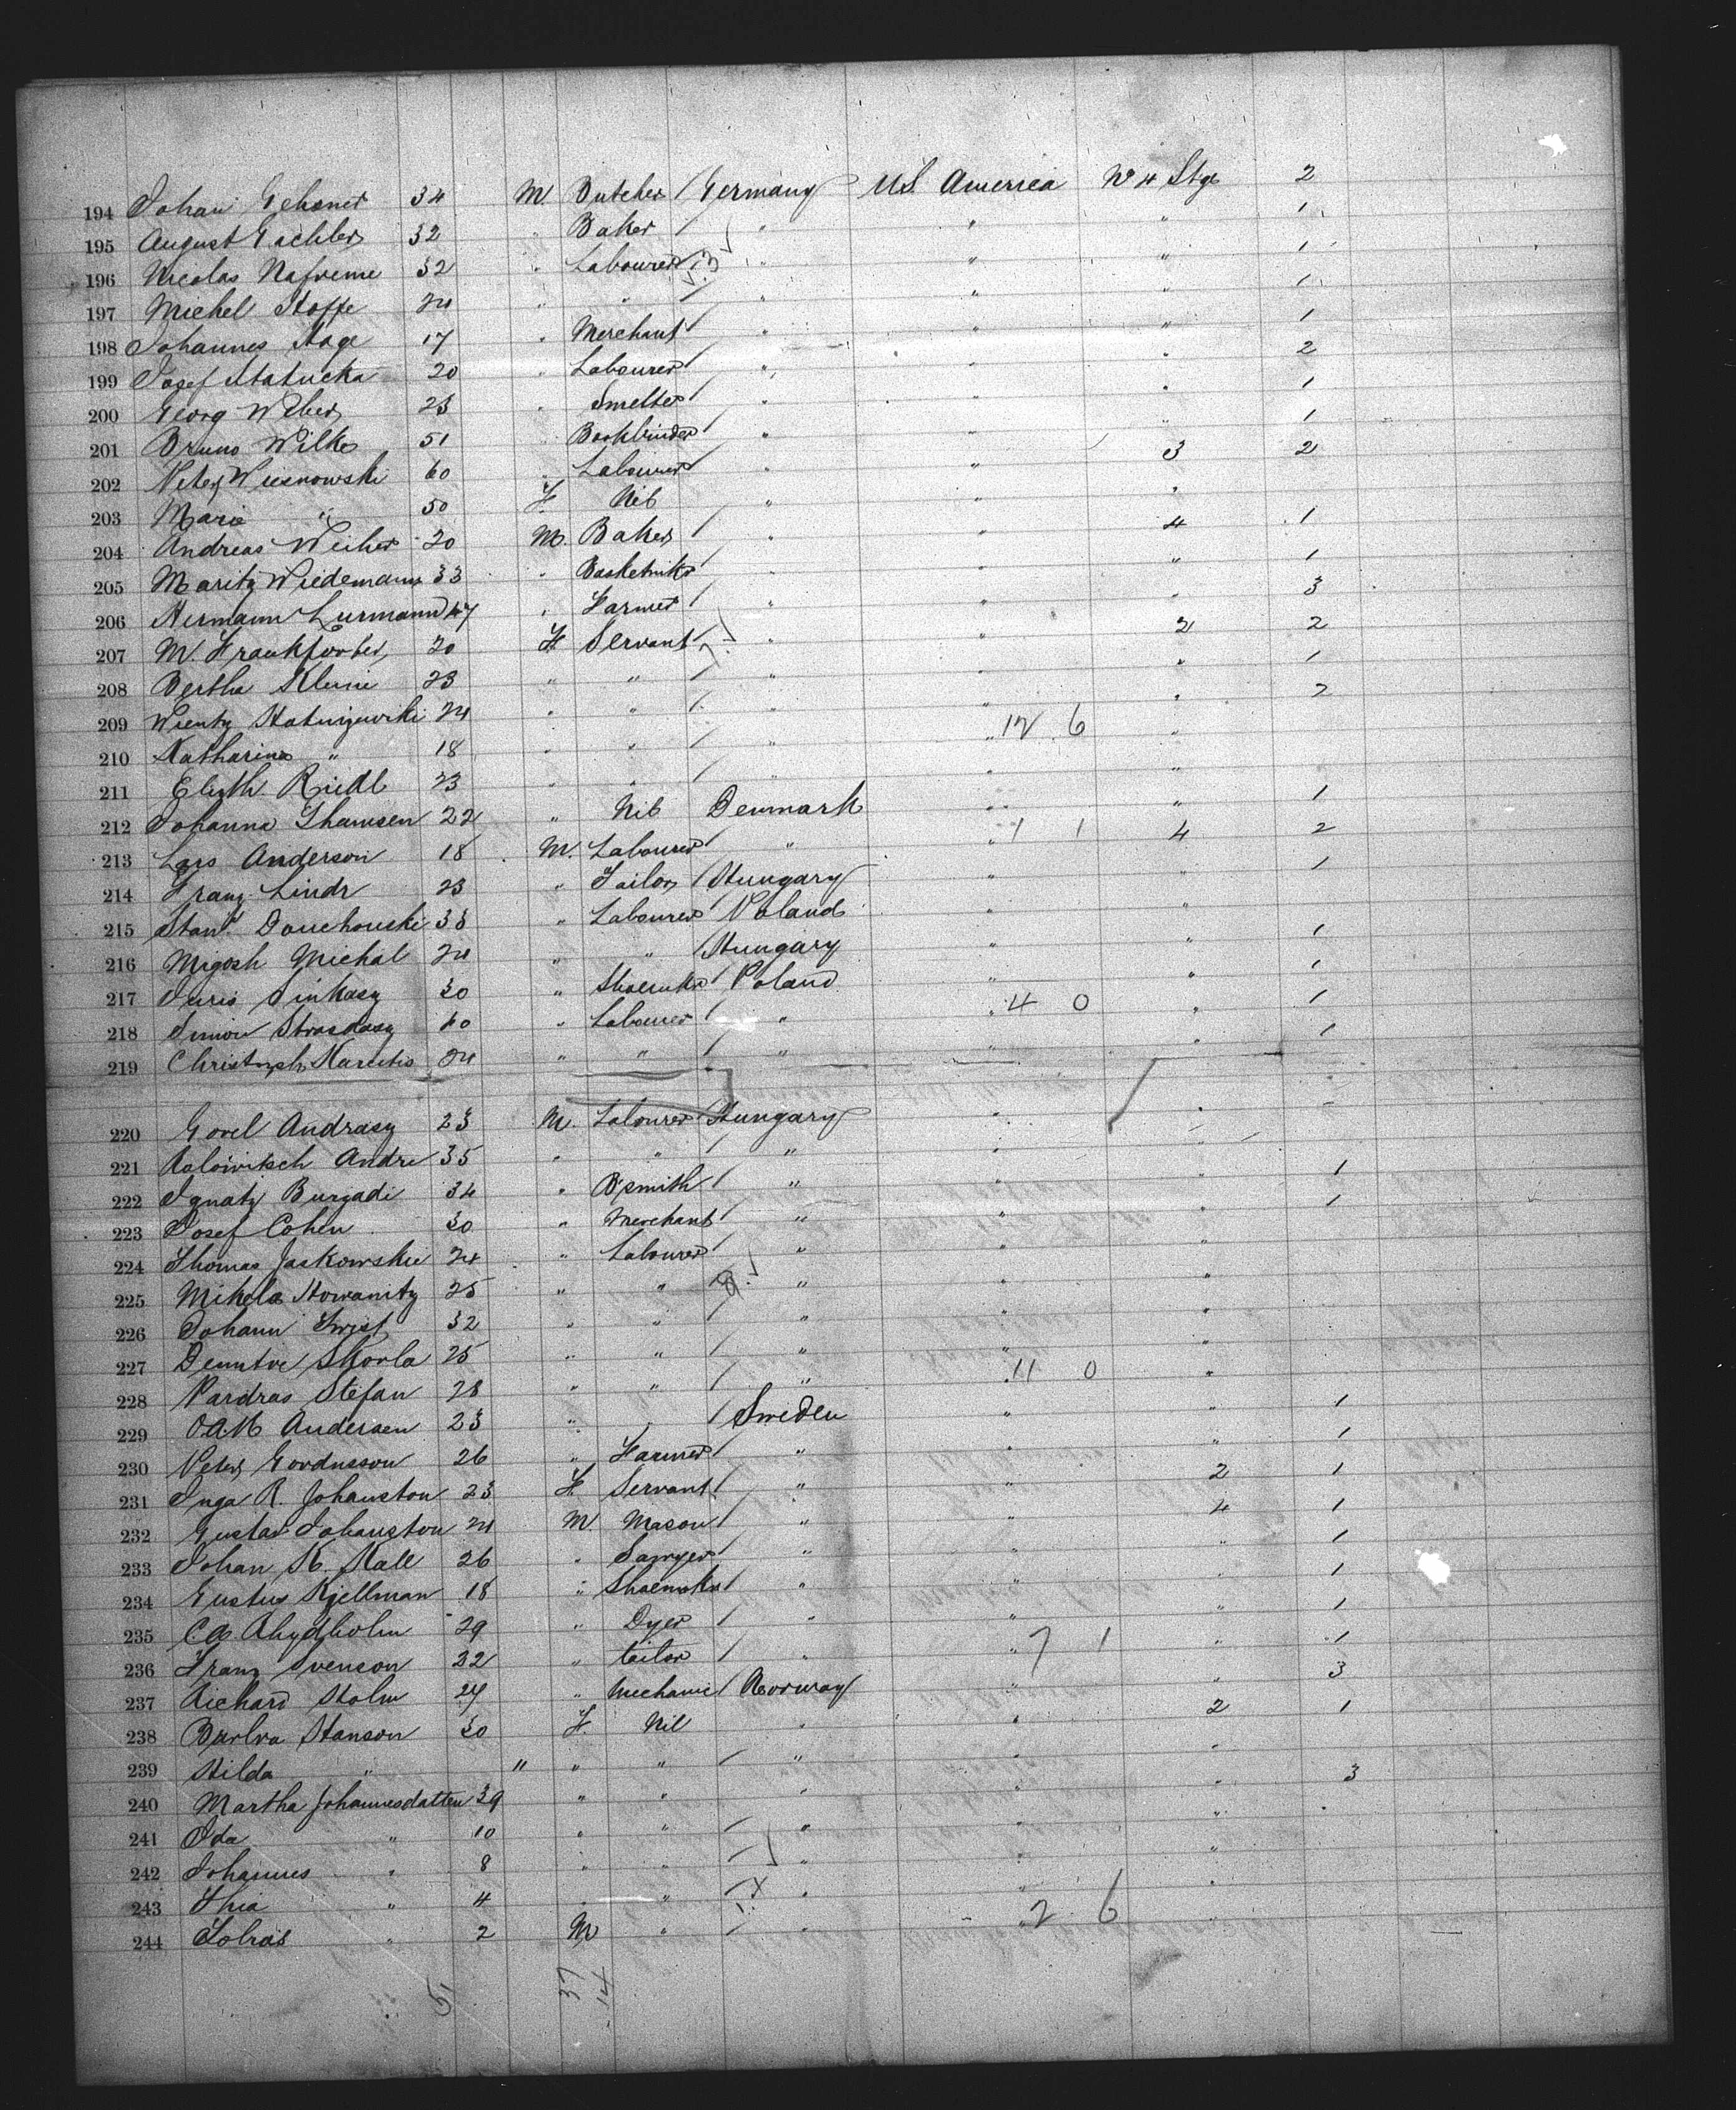 194 Johan Gehsner 34 M Butcher / Germany U.S. America No 4 Stge 2
195 August Eachler 32 " Baker / " " " 1
196 Nicolas Nafreme 32 " Labourer " " " 1
197 Michel Hoffe 24 " " / " " " 1
198 Johannes Hage 17 " Merchant / " " " 1
199 Josef Statucka 20 " Labourer / " " " 2
200 Georg Weber 23 " Smelter / " " " 1
201 Bruno Wilke 51 " Bookbinder / " " " 1
202 Peter Wiesnowski 60 " Labourer / " " 3 2
203 Marie " 50 F. Nil " " "
204 Andreas Weiher 20 M. Baker / " " 4 1
205 Moritz Wiedemann 33 " Basketmkr / " " " 1
206 Hermann Lurmann 47 " Farmer / " " " 3
207 M. Frankforter 20 F Servant / " " 2 2
208 Bertha Kleine 23 " " / " " " 1
209 24 " " / " " " 2
210 Katharina " 18 " " / " " 12 6 "
211 Elisth Riedl 23 " " / " " "
212 Johanna Thamsen 22 " Nil Denmark " " 1
213 Lars Anderson 18 M. Labourer / " " 1 1 4 2
214 Franz Lindr 23 " Tailor / Hungary " " 1
215 Stanl. 38 " Labourer / Poland " "
216 Migosh Michal 24 " " / Hungary " " 1
217 Juris Sinkasz 30 " Shoemkr / Poland " " 1
218 Simon Strasdasz 40 " Labourer / " " 4 0 " 1
219 Christoph 24 " " / " " " 1
220 Govel Andrasz 23 M. Labourer / Hungary " "
221 Andre 35 " " / " "
222 Ignatz Burgadi 34 " B'smith / " " " 1
223 Josef Cohen 30 " Merchant / " " " 1
224 Thomas Jaskowske 24 " Labourer / " " "
225 Mikola Howanitz 25 " " " " "
226 Johann 32 " " / " " "
227 Skorla 25 " " / " " "
228 Pardras Stefan 28 " " / " " 11 0 "
229 O.A.M Andersen 23 " / Sweden " " 1
230 Peter Gordusson 26 " Farmer / " " " 1
231 Inga R. Johanston 23 F. Servant / " " 2 1
232 Gustav Johanston 24 M. Mason / " " 4 1
233 Johan K. Kall 26 " Sawyer / " " " 1
234 Gustus Kjellman 18 " Shoemkr / " " " 1
235 C.A. 29 " Dyer / " " " 1
236 Franz Svenson 22 " tailor / " " 7 1 " 1
237 Richard Holm 24 " Mechanic / Norway " " 3
238 Barbra Hanson 30 F. Nil " " 2 1
239 Hilda " 11 " " / " " "
240 Martha Johannesdatten 39 " " " " " 3
241 Ida " 10 " " / " " "
242 Johannes " 8 " " / " " "
243 Thia " 4 " " / " " "
244 Tobias " 2 M " / " " 2 6 "
51 37 14